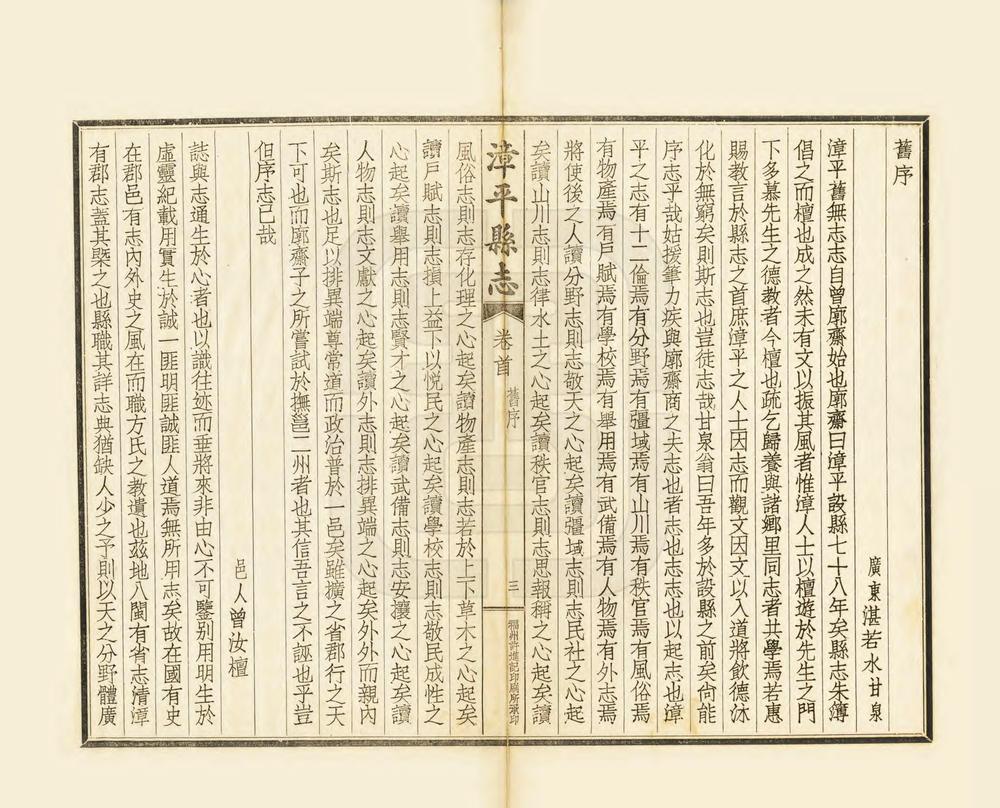 舊序
廣東湛若水甘泉
漳平舊無志志自曾廓齋始也廓齋曰漳平設縣七十八年矣縣志朱簿
倡之而檀也成之然未有文以振其風者惟漳人士以檀遊於先生之門
下多慕先生之德教者今檀也疏乞歸養與諸鄉里同志者共學焉若惠
賜教言於縣志之首庶漳平之人士因志而觀文因文以入道將飲德沐
化於無窮矣則斯志也豈徒志哉甘泉翁曰吾年多於設縣之前矣尙能
序志乎哉姑援筆力疾與廓齋商之夫志也者志也志志也以起志也漳
平之志有十二倫焉有分野焉有疆域焉有山川焉有秩官焉有風俗焉
有物產焉有戸賦焉有學校焉有舉用焉有武備焉有人物焉有外志焉
將使後之人讀分野志則志敬天之心起矣讀疆域志則志民社之心起
矣讀山川志則志律水土之心起矣讀秩官志則志思報稱之心起矣讀
漳平縣志 卷首 舊序 三 福州許進記印刷所承印
風俗志則志存化理之心起矣讀物產志則志若於上下草木之心起矣
讀戸賦志則志損上益下以悅民之心起矣讀學校志則志敬民成性之
心起矣讀舉用志則志賢才之心起矣讀武備志則志安攘之心起矣讀
人物志則志文獻之心起矣讀外志則志排異端之心起矣外外而親內
矣斯志也足以排異端尊常道而政治普於一邑矣雖擴之省郡行之天
下可也而廓齋子之所嘗試於撫邕二州者也其信吾言之不誣也乎豈
但序志已哉
邑人曾汝檀
誌與志通生於心者也以識往迹而垂將來非由心不可鑒別用明生於
虛靈紀載用實生於誠一匪明匪誠匪人道焉無所用志矣故在國有史
在郡邑有志內外史之風在而職方氏之教遺也茲地八閩有省志淸漳
有郡志蓋其槩之也縣職其詳志典猶缺人少之予則以天之分野體廣